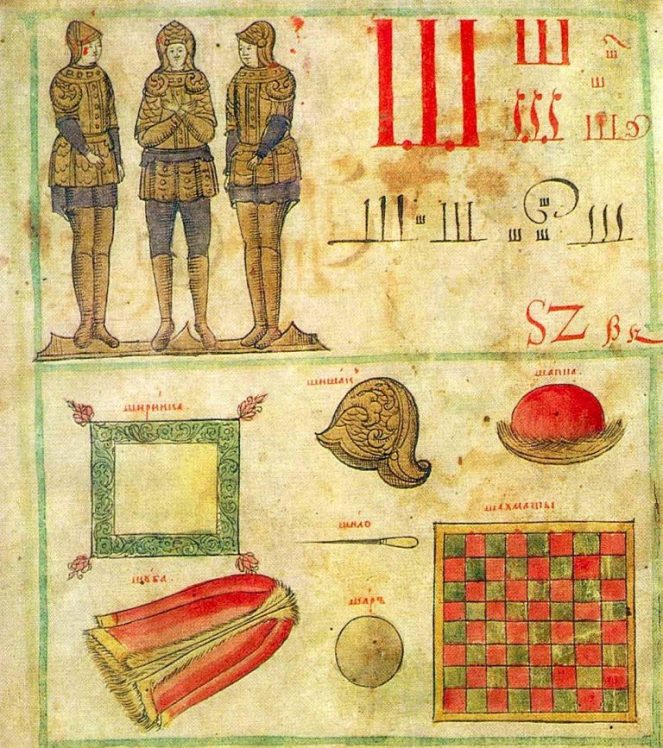 Ш Ш ш
ш
Ш Ш
Ш ш Ш ш ш ш ш Ш
SZ ßz
ширинка шишакъ шапка.
шило шахматы
шꙋба. шаръ